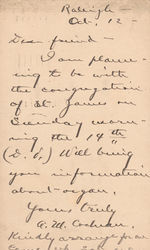 Raleigh -
Oct. 12 -
Dear friend -
I am plann-
ing to be with
the congregation
of St. James on
Sunday morn-
ing the 14th
(D. V.) Will bring
you information
about organ.
Yours truly
Kindly arrange